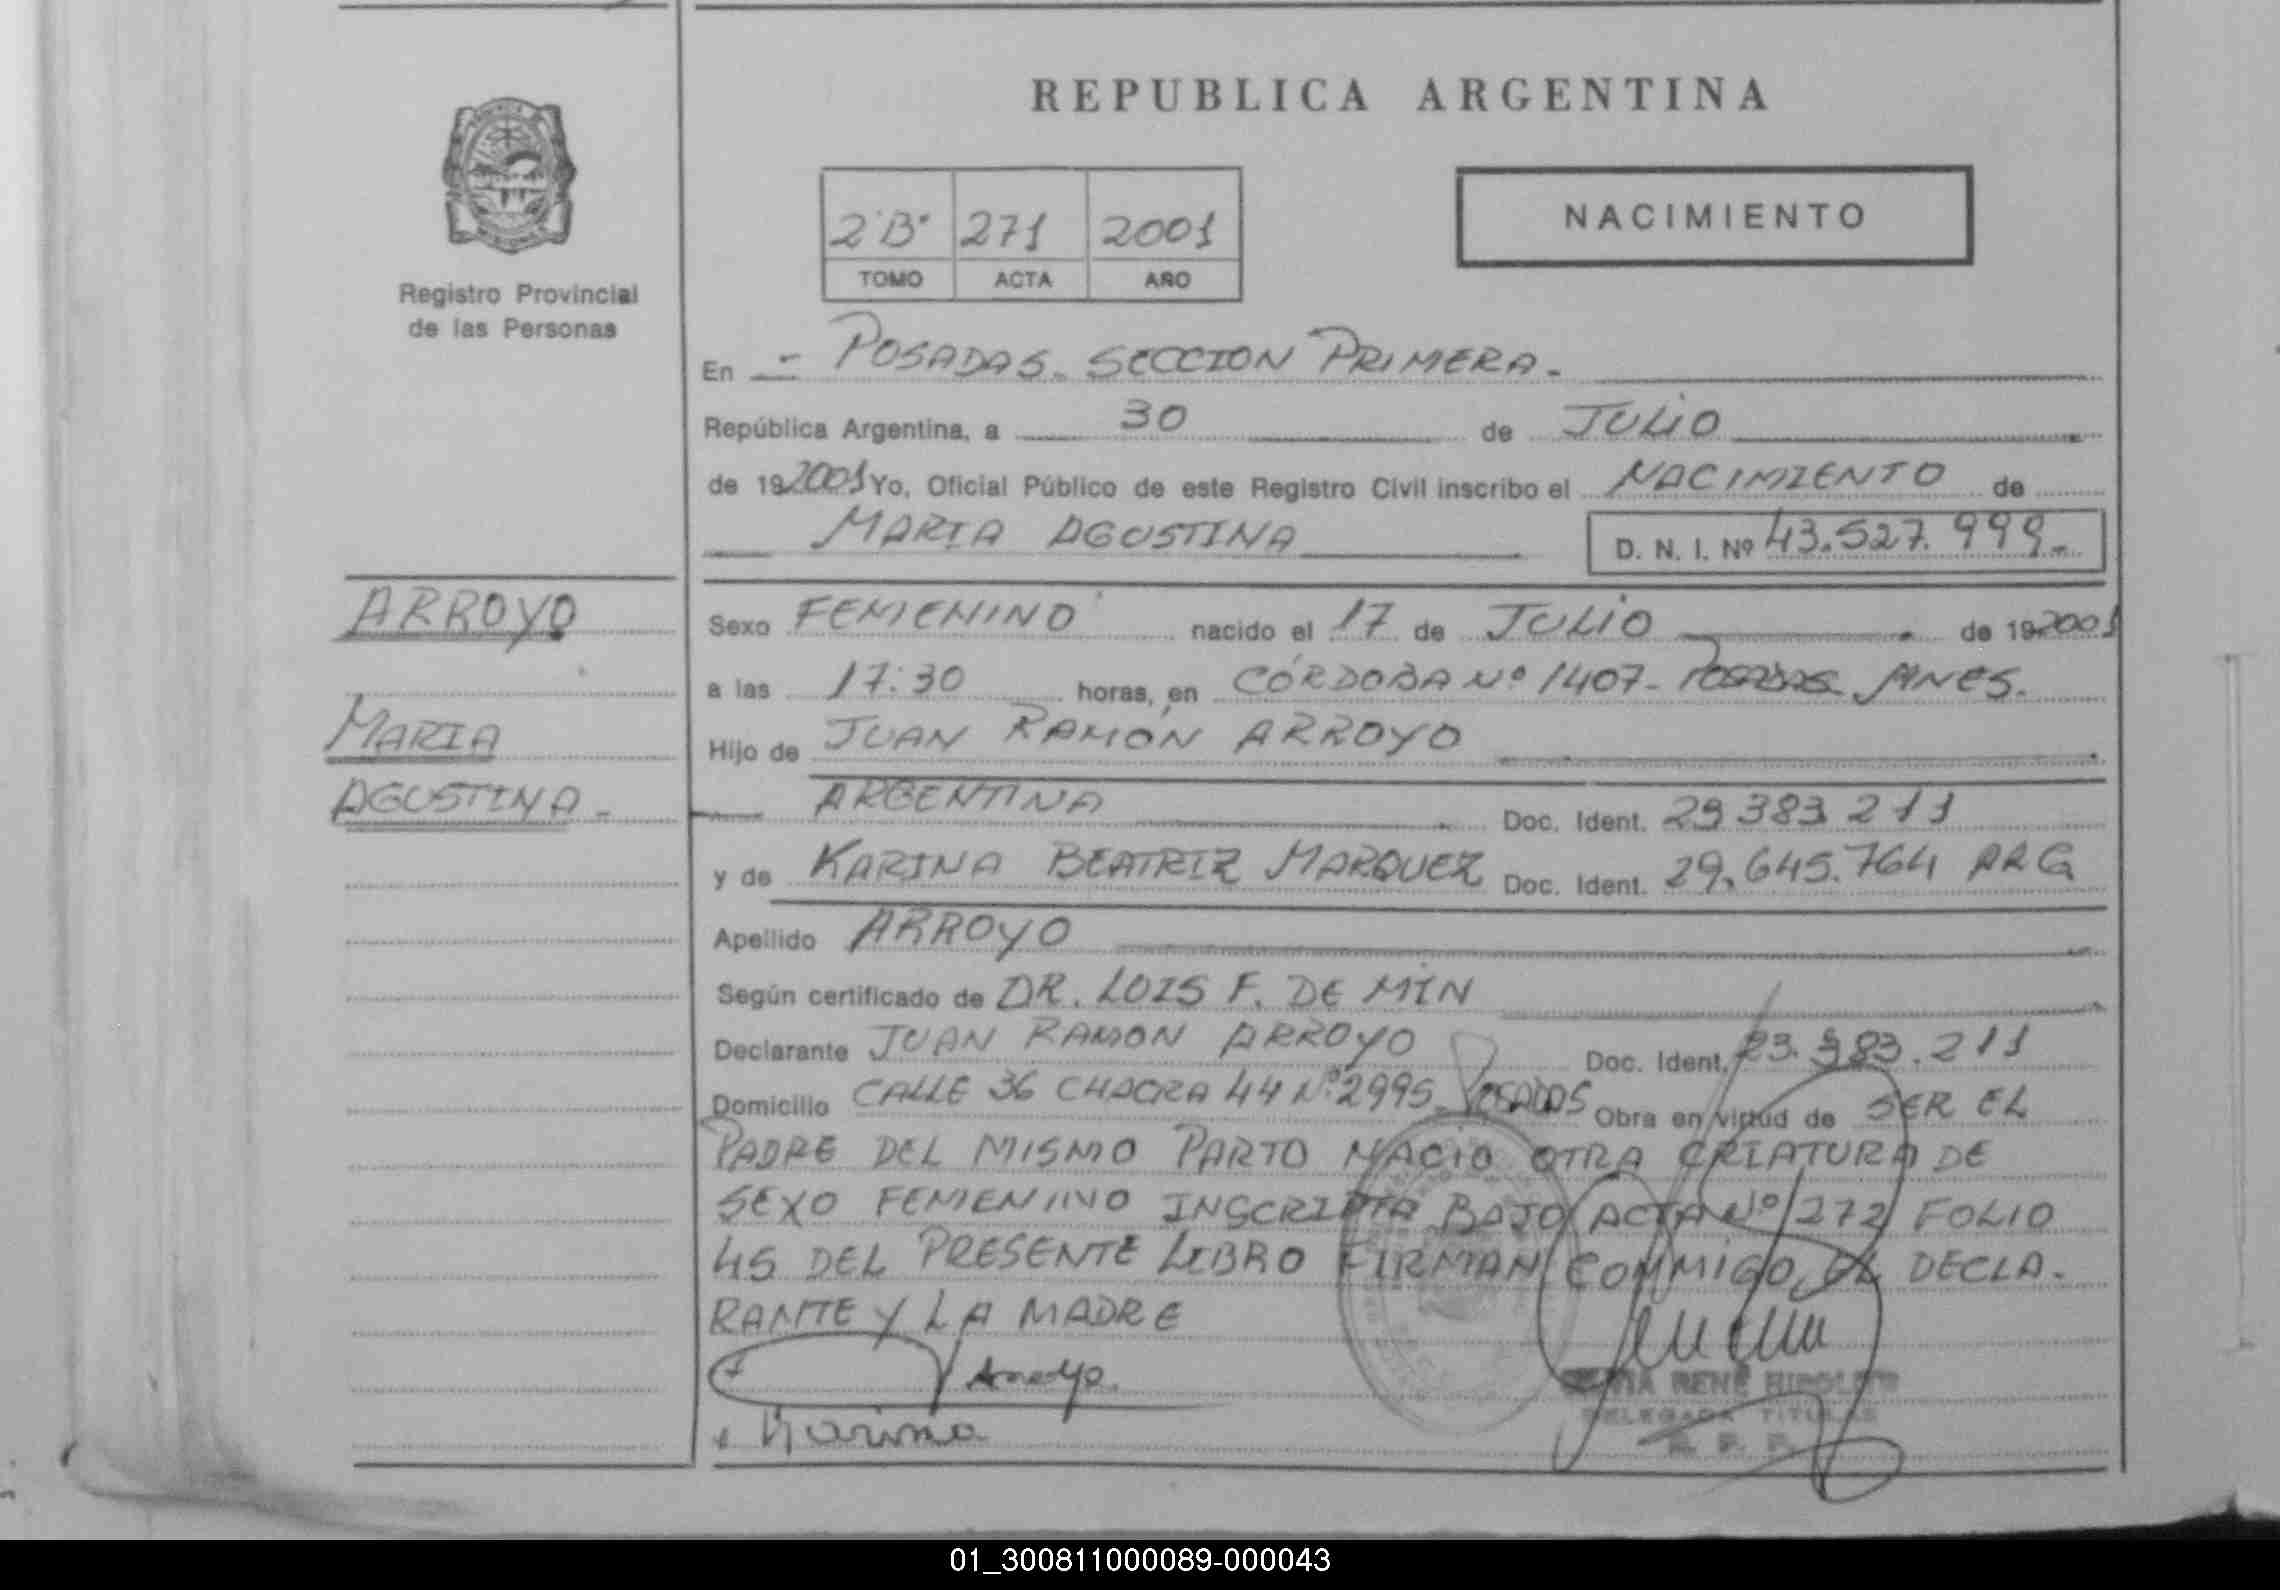 REPUBLICA ARGENTINA
Registro Provincial
de las Personas
2 B 271 2001
TOMO ACTA AÑO
NACIMIENTO
En - POSADAS. SECCION PRIMERA.
República Argentina, a 30 de JULIO
de 192001 Yo, Oficial Público de este Registro Civil inscribo el NACIMIENTO de
MARIA AGUSTINA D. N. I. Nº 43.527.999.-
ARROYO
MARIA
AGUSTINA -
Sexo FEMENINO nacido el 17 de JULIO de 192001
a las 17:30 horas, en CÓRDOBA Nº 1407- POSADAS MNES.
Hijo de JUAN RAMÓN ARROYO
ARGENTINA Doc. Ident. 23 383 211
y de KARINA BEATRIZ MARQUEZ Doc. Ident. 29.645.764 ARG
Apellido ARROYO
Según certificado de DR. LUIS F. DE MIN
Declarante JUAN RAMON ARROYO Doc. Ident. 23.383.211
Domicilio CALLE 36 CHACRA 44 Nº 2995 POSADAS Obra en virtud de SER EL
PADRE DEL MISMO PARTO NACIO OTRA CRIATURA DE
SEXO FEMENINO INSCRIPTA BAJO ACTA Nº 272 FOLIO
45 DEL PRESENTE LIBRO FIRMAN CONMIGO EL DECLA-
RANTE Y LA MADRE
Arroyo
Karina
RENE
DELEGADA TITULAR
R. P. P.
01_300811000089-000043